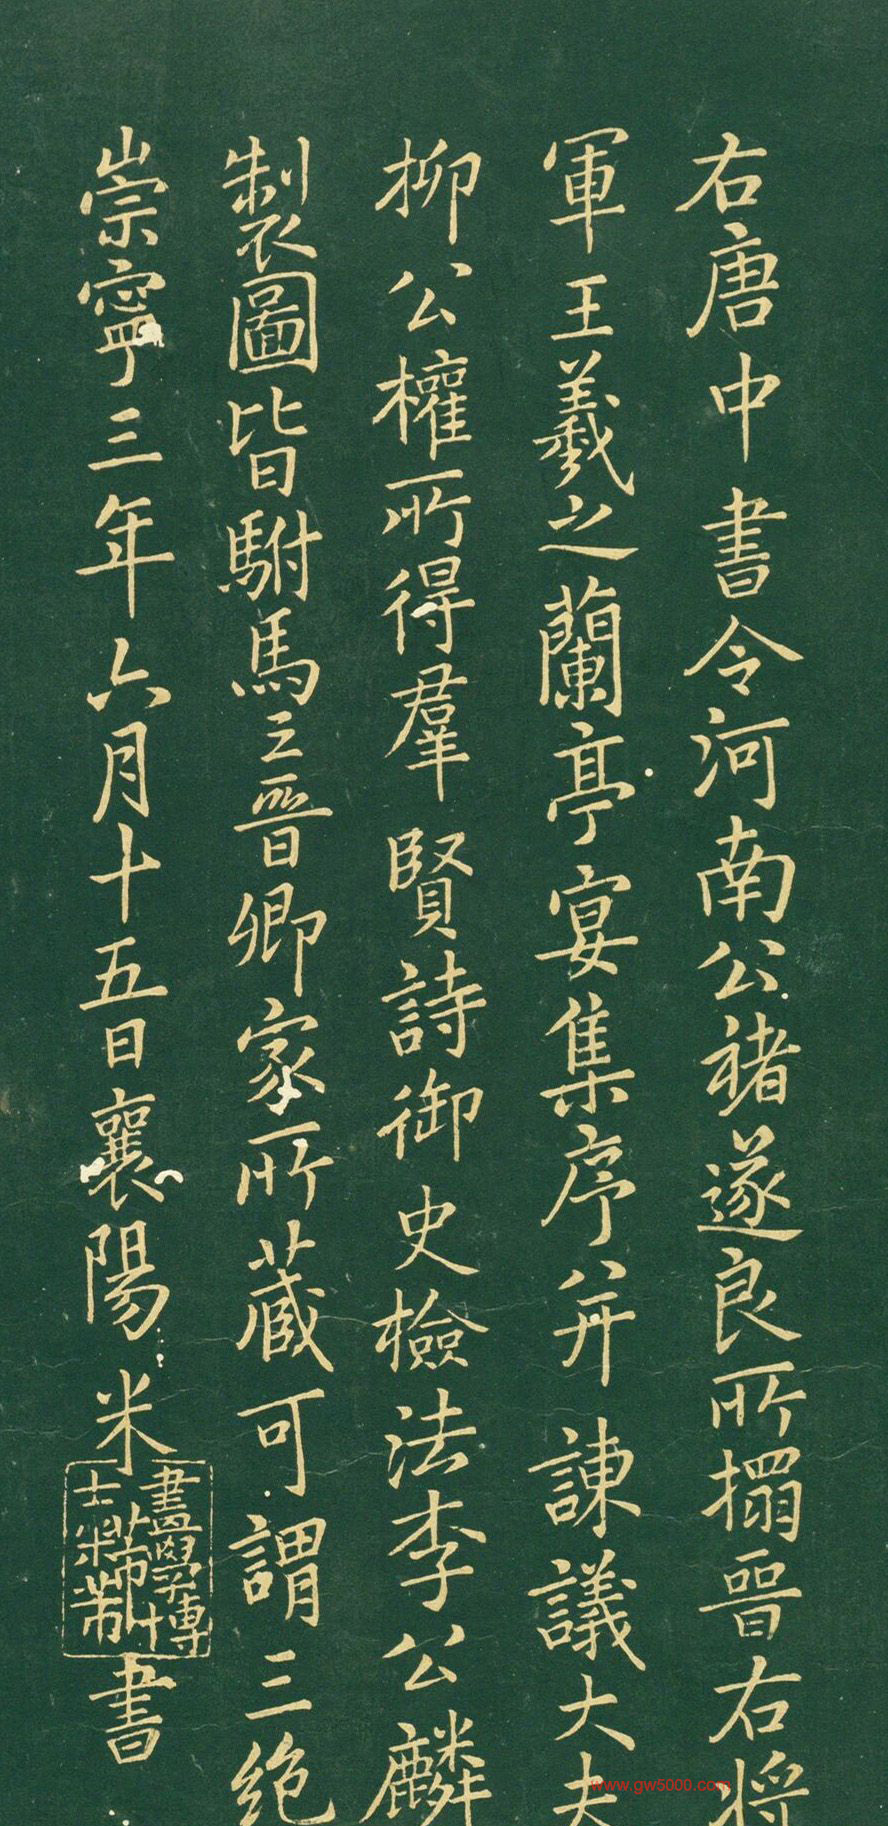 右唐中書令河南公褚遂良所搨晉右将
軍王羲之蘭亭宴集序并諫議大夫
柳公權所得羣賢詩御史檢法李公麟
製圖皆駙馬王晉卿家所蔵可謂三絶
崇寧三年六月十五日襄陽米
書
畫學博
士米芾
www.gw5000.com